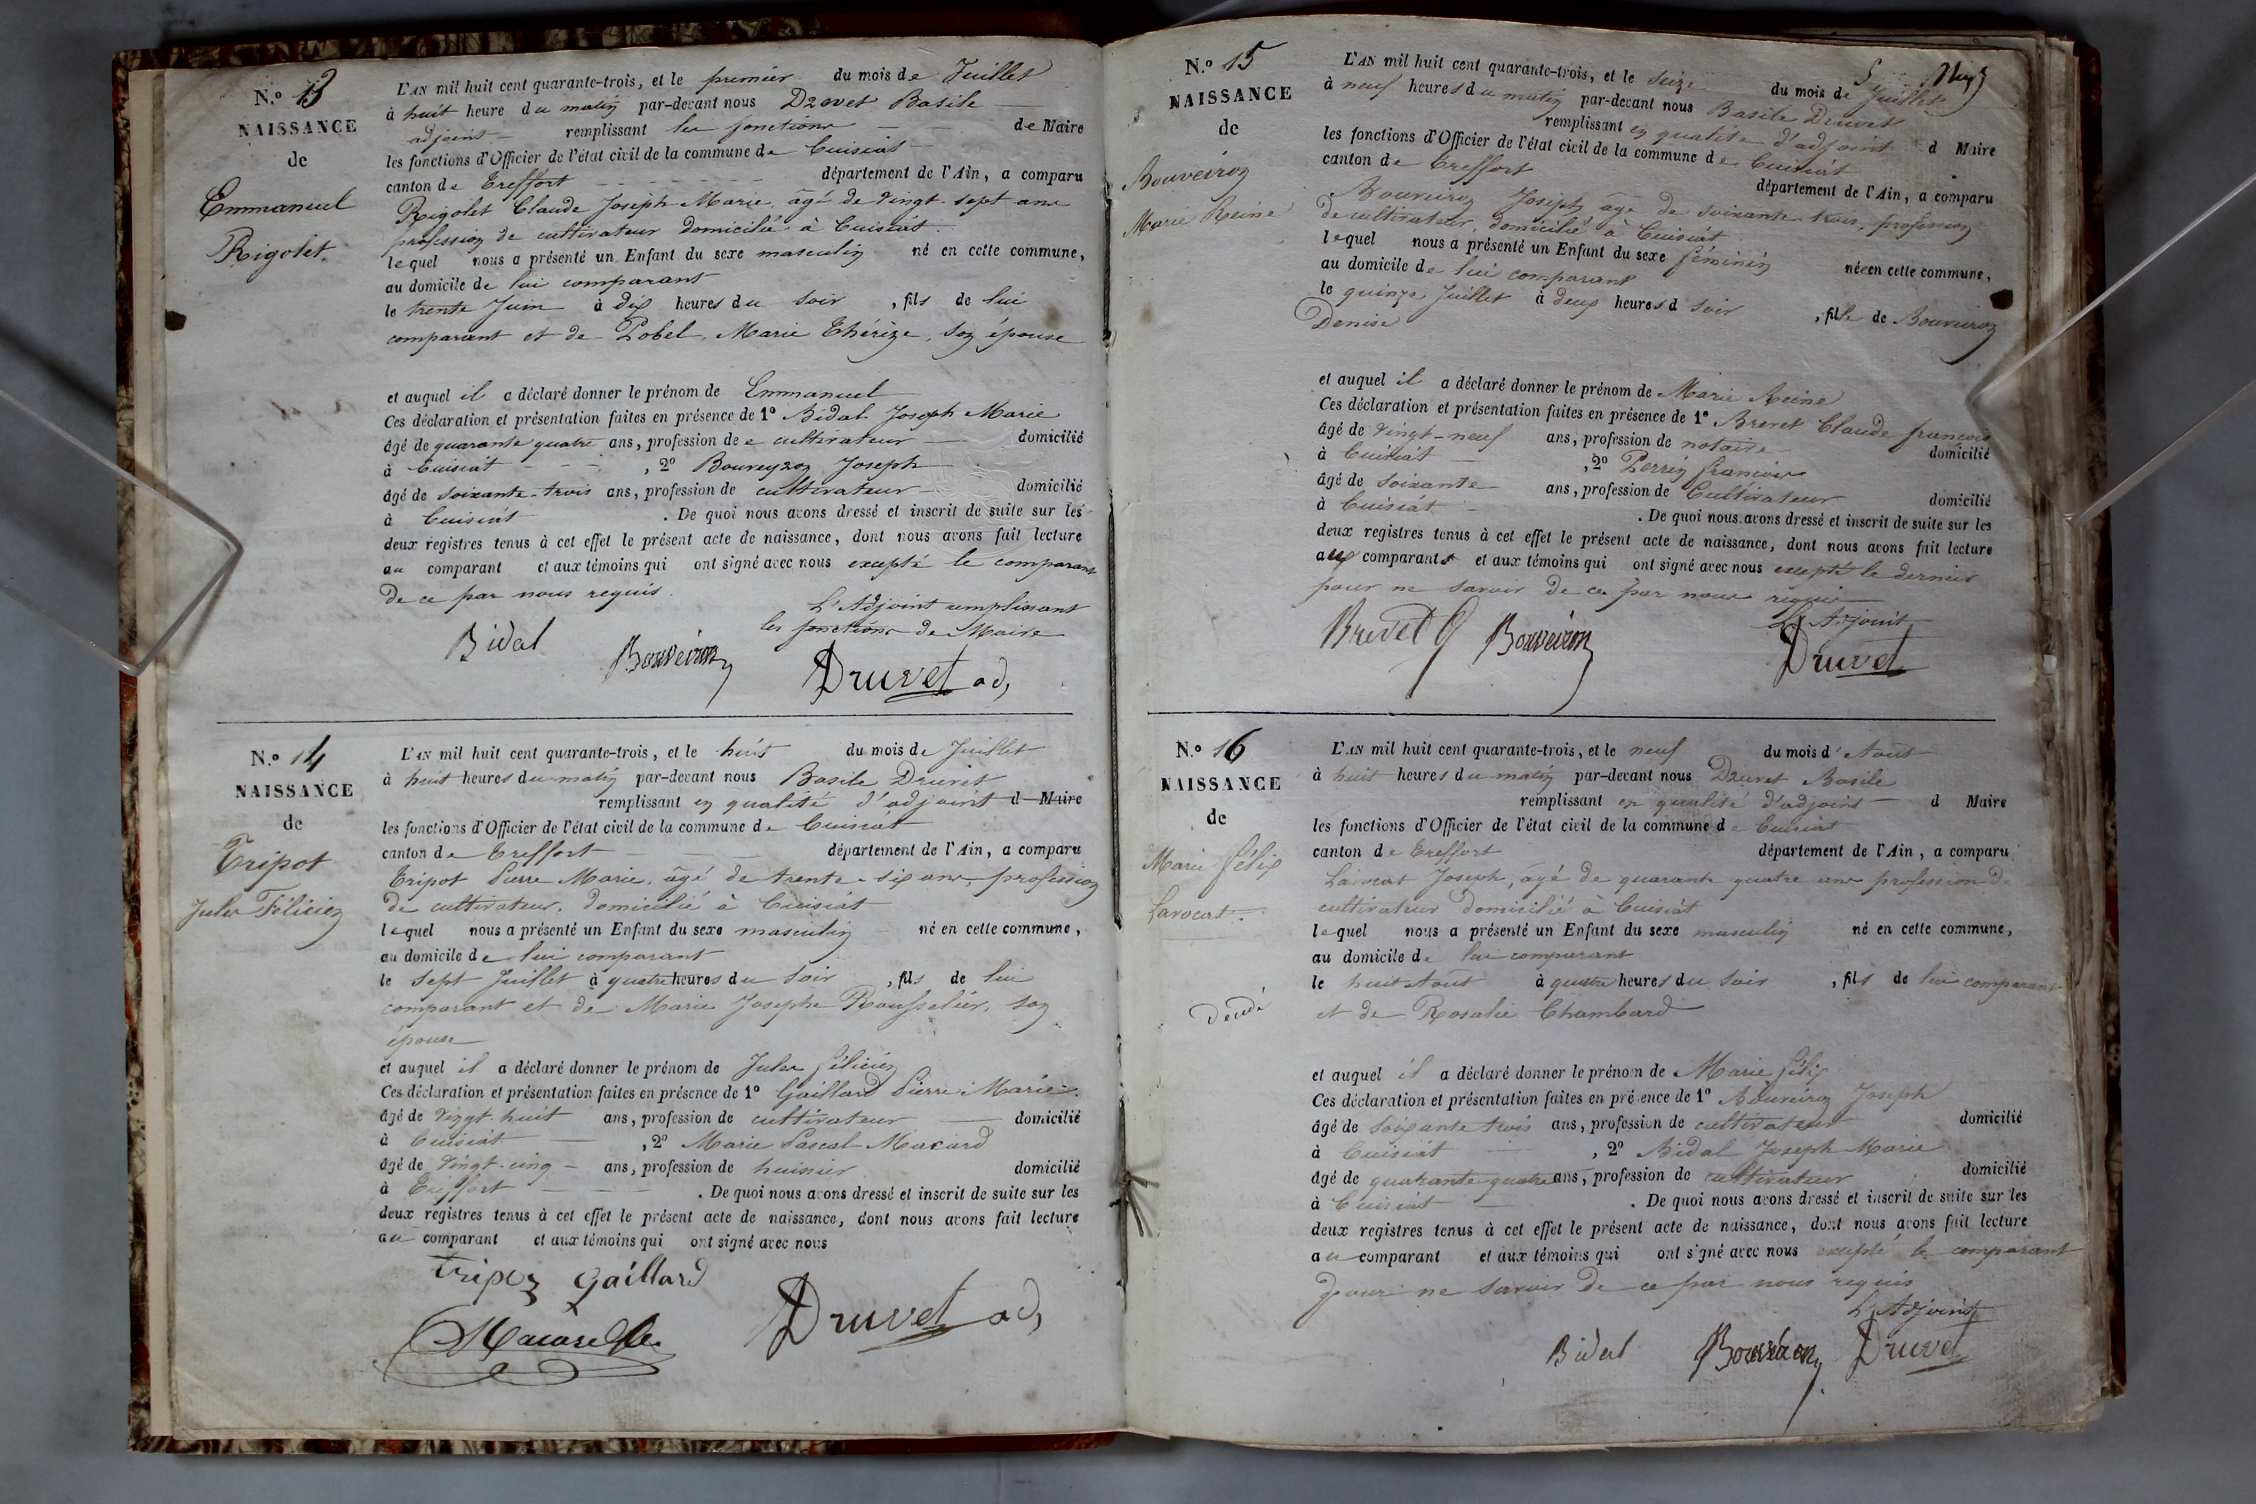 N.º 13
NAISSANCE
de
Emmanuel
Rigolet.
L'AN mil huit cent quarante-trois, et le premier du mois de Juillet
à huit heure du matin par-devant nous Druvet Basile
adjoint remplissant les fonctions de Maire
les fonctions d'Officier de l'état civil de la commune de Cuisiat
canton de Treffort département de l'Ain, a comparu
Rigolet Claude Joseph Marie, âgé de vingt-sept ans
profession de cultivateur domicilié à Cuisiat.
lequel nous a présenté un Enfant du sexe masculin né en cette commune,
au domicile de lui comparant
le trente Juin à dix heures du soir, fils de lui
comparant et de Pobel, Marie Thérèze, son épouse
et auquel il a déclaré donner le prénom de Emmanuel
Ces déclaration et présentation faites en présence de 1º Bidal Joseph Marie
âgé de quarante quatre ans, profession de cultivateur domicilié
à Cuisiat, 2º Bouveyron Joseph
âgé de soixante-trois ans, profession de cultivateur domicilié
à Cuisiat. De quoi nous avons dressé et inscrit de suite sur les
deux registres tenus à cet effet le présent acte de naissance, dont nous avons fait lecture
au comparant et aux témoins qui ont signé avec nous excepté le comparant
de ce par nous requis.
L'Adjoint remplissant
les fonctions de Maire
Bidal Bouveiron Druvet ad,
N.º 14
NAISSANCE
de
Tripot
Jules Félicien
L'AN mil huit cent quarante-trois, et le huit du mois de Juillet
à huit heures du matin par-devant nous Basile Druvet
remplissant en qualité d'adjoint d Maire
les fonctions d'Officier de l'état civil de la commune de Cuisiat
canton de Treffort département de l'Ain, a comparu
Tripot Pierre Marie, âgé de trente-six ans, profession
de cultivateur, domicilié à Cuisiat
lequel nous a présenté un Enfant du sexe masculin né en cette commune,
au domicile de lui comparant
le sept Juillet à quatre heures du soir, fils de lui
comparant et de Marie Josephe Rousselier, son
épouse
et auquel il a déclaré donner le prénom de Jules félicien
Ces déclaration et présentation faites en présence de 1º Gaillard Pierre Marie
âgé de vingt huit ans, profession de cultivateur domicilié
à Cuisiat, 2º Marie Pascal Macard
âgé de vingt-cinq ans, profession de huissier domicilié
à Treffort. De quoi nous avons dressé et inscrit de suite sur les
deux registres tenus à cet effet le présent acte de naissance, dont nous avons fait lecture
au comparant et aux témoins qui ont signé avec nous
Gaillard
Druvet ad,
N.º 15
NAISSANCE
de
Bouveiron
Marie Reine
L'AN mil huit cent quarante-trois, et le seize du mois de Juillet
à neuf heures du matin par-devant nous Basile Druvet
remplissant en qualité d'adjoint d Maire
les fonctions d'Officier de l'état civil de la commune de Cuisiat
canton de Treffort département de l'Ain, a comparu
Bouveiron Joseph âgé de soixante-trois, profession
de cultivateur, domicilié à Cuisiat
lequel nous a présenté un Enfant du sexe féminin née en cette commune,
au domicile de lui comparant
le quinze Juillet à deux heures d soir, fille de Bouveiron
Denise
et auquel il a déclaré donner le prénom de Marie Reine
Ces déclaration et présentation faites en présence de 1º Brevet Claude françois
âgé de vingt-neuf ans, profession de notaire domicilié
à Cuisiat, 2º Perrin françois
âgé de soixante ans, profession de Cultivateur domicilié
à Cuisiat. De quoi nous avons dressé et inscrit de suite sur les
deux registres tenus à cet effet le présent acte de naissance, dont nous avons fait lecture
aux comparants et aux témoins qui ont signé avec nous excepté le dernier
pour ne savoir de ce par nous requis
L'Adjoint
Brevet Bouveiron Druvet
N.º 16
NAISSANCE
de
Marie félix
Lavocat.
Décédé
L'AN mil huit cent quarante-trois, et le neuf du mois d'Aout
à huit heures du matin par-devant nous Druvet Basile
remplissant en qualité d'adjoint d Maire
les fonctions d'Officier de l'état civil de la commune de Cuisiat
canton de Treffort département de l'Ain, a comparu
Lavocat Joseph, âgé de quarante quatre ans profession de
cultivateur domicilié à Cuisiat
lequel nous a présenté un Enfant du sexe masculin né en cette commune,
au domicile de lui comparant
le huit Aout à quatre heures du soir, fils de lui comparant
et de Rosalie Chambard
et auquel il a déclaré donner le prénom de Marie félix
Ces déclaration et présentation faites en présence de 1º Bouveiron Joseph
âgé de soixante trois ans, profession de cultivateur domicilié
à Cuisiat, 2º Bidal Joseph Marie
âgé de quarante quatre ans, profession de cultivateur domicilié
à Cuisiat. De quoi nous avons dressé et inscrit de suite sur les
deux registres tenus à cet effet le présent acte de naissance, dont nous avons fait lecture
au comparant et aux témoins qui ont signé avec nous excepté le comparant
pour ne savoir de ce par nous requis
L'Adjoint
Bidal Bouveiron Druvet